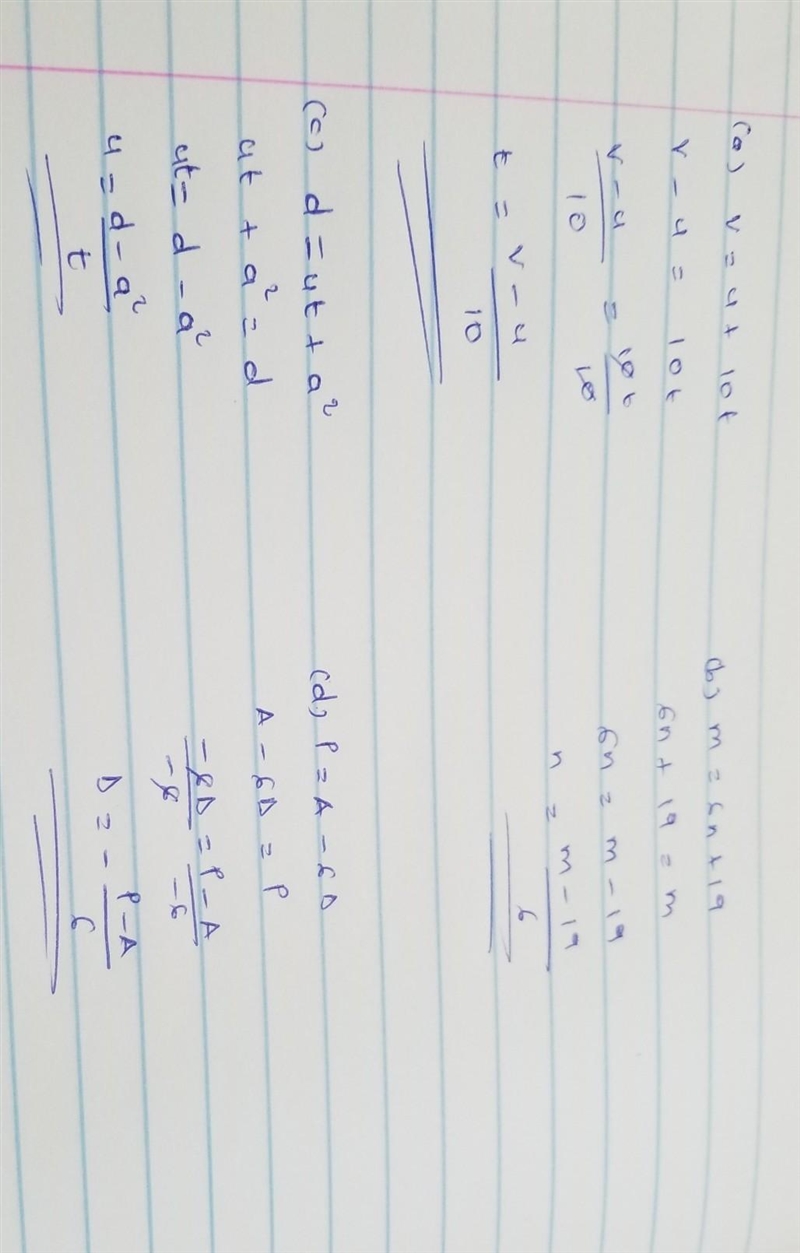 (a) v = u + 10t
v - u = 10t
v - u / 10 = 10t / 10
t = v - u / 10
(b) m = 6n + 19
6n + 19 = m
6n = m - 19
n = m - 19 / 6
(c) d = ut + a²
ut + a² = d
ut = d - a²
u = d - a² / t
(d) P = A - 6D
A - 6D = P
-6D / -6 = P - A / -6
D = - P - A / 6